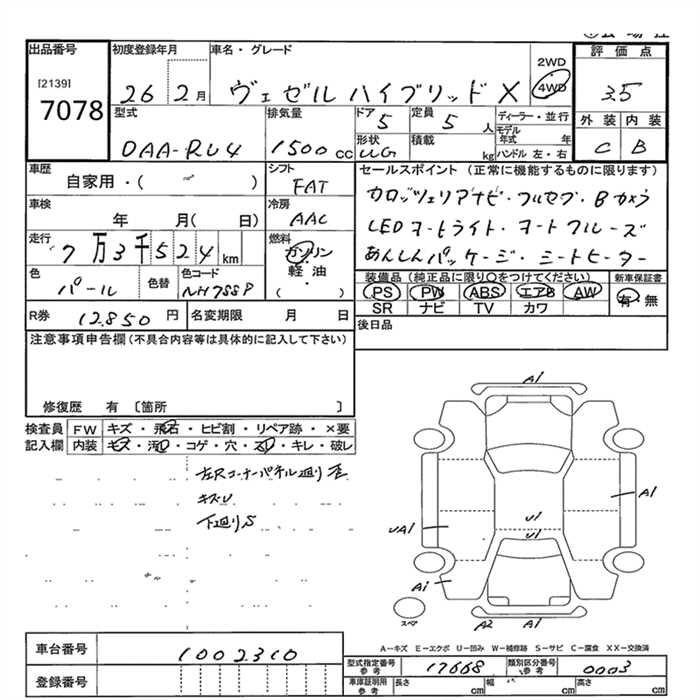 出品番号
[2139]
7078
初度登録年月
26 2月
車名・グレード
ヴェゼル ハイブリッド X
2WD
4WD
評価点
3.5
型式
DAA-RU4
排気量
1500 cc
ドア
5
定員
5 人
形状
WG
積載
kg
ディーラー・並行
モデル年式 年
ハンドル 左・右
外装 内装
C B
車歴
自家用・( )
シフト
FAT
セールスポイント (正常に機能するものに限ります)
カロッツェリアナビ・フルセグ・Bカメラ
LEDヘッドライト・
あんしんパッケージ・シートヒーター
車検
年 月( 日)
冷房
AAC
走行
7万3千524 km
燃料
ガソリン
軽油
( )
色
パール
色替
色コード
NH788P
装備品 (純正品に限り○をつけてください)
新車保証書
PS PW ABS エアB AW
有・無
SR ナビ TV カワ
R券 12,850 円
名変期限 月 日
後日品
注意事項申告欄 (不具合内容等は具体的に記入して下さい)
修復歴 有 〔箇所 〕
検査員
記入欄
FW キズ・飛石・ヒビ割・リペア跡・×要
内装 キズ・汚れ・コゲ・穴・スレ・キレ・破レ
キズU
下廻りS
A1
A1
UA1
U1
U1
A1
A2 A1
スペア
A-キズ E-エクボ U-凹み W-補修跡 S-サビ C-腐食 XX-交換済
車台番号 1002310
登録番号
型式指定番号 参考 17668
類別区分番号 参考 0003
車庫証明用 参考
長さ cm
幅 cm
高さ cm